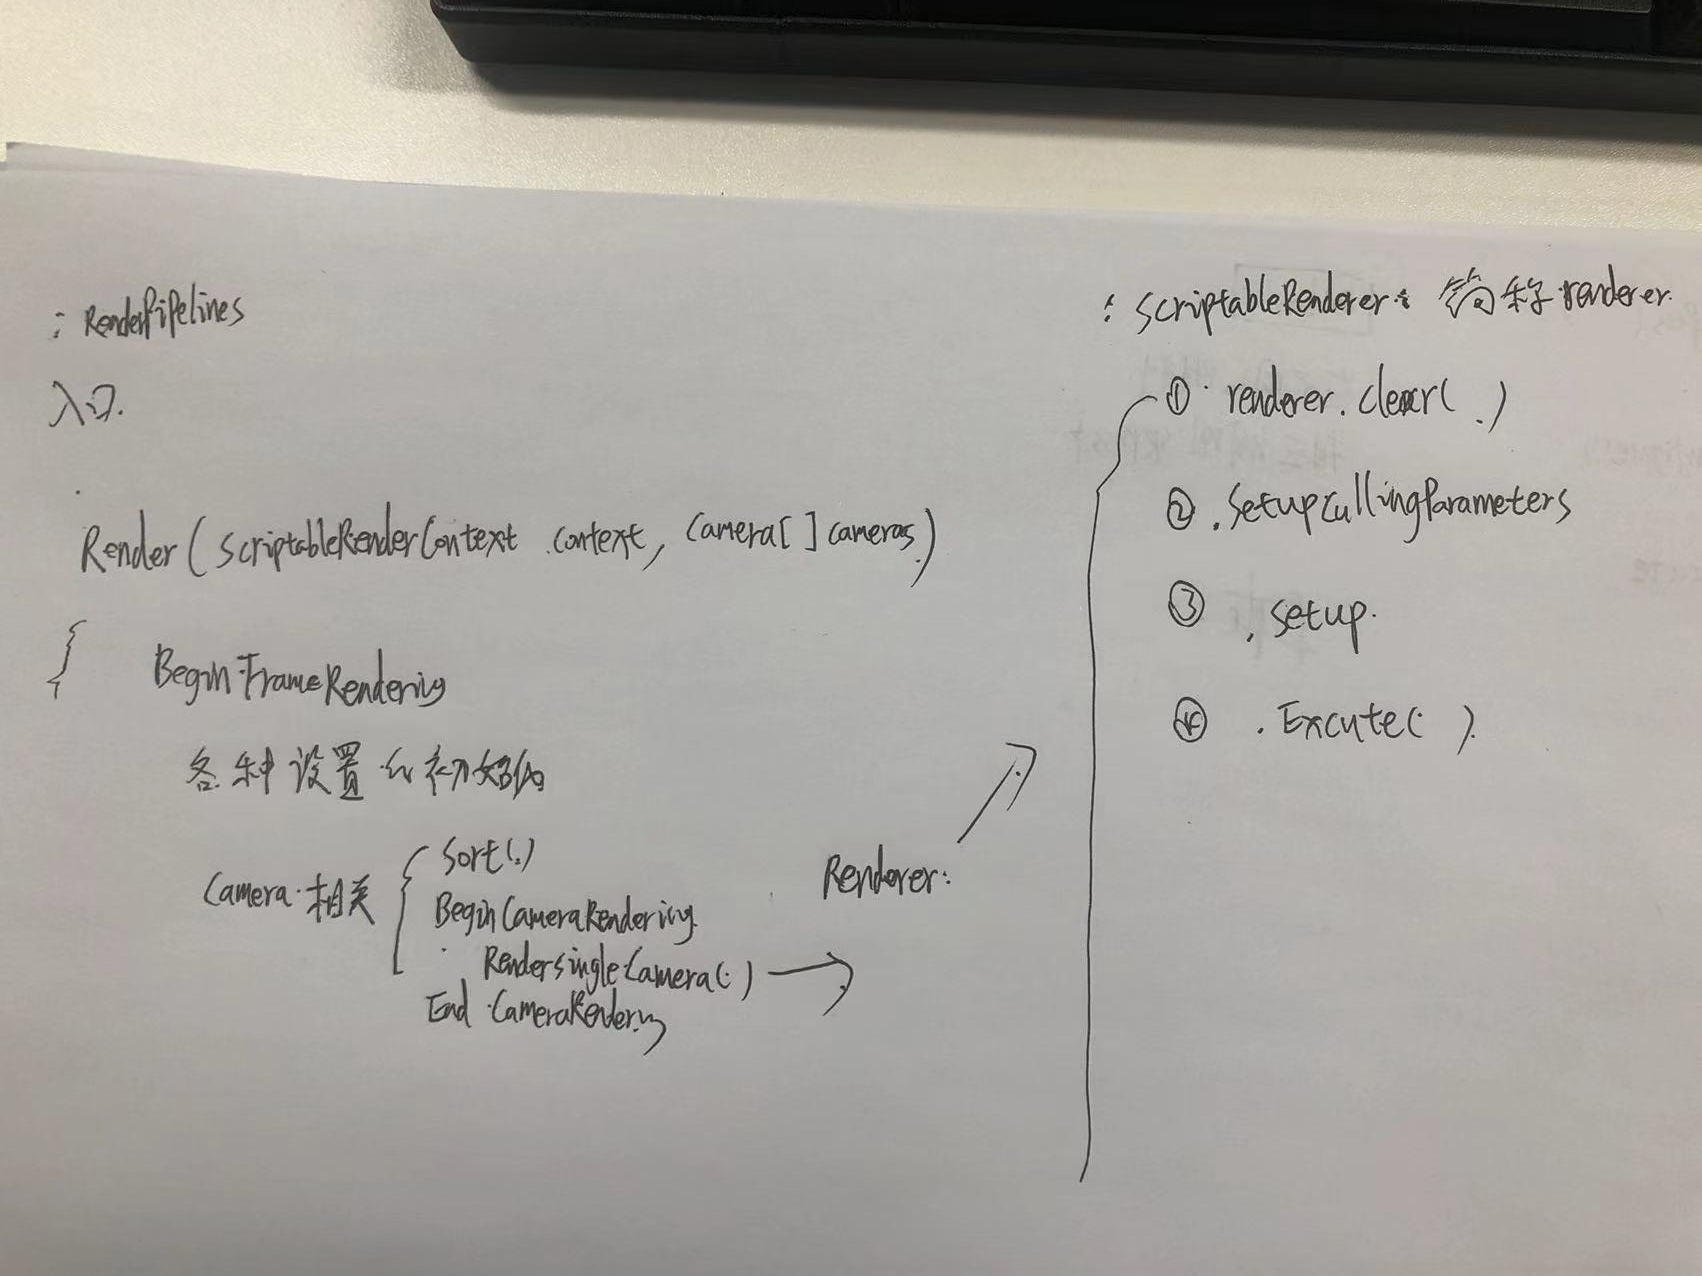 : RenderPipelines
入口.
Render ( ScriptableRenderContext context, Camera[ ] cameras )
{
BeginFrameRendering
各种设置和初始化
Camera 相关
Sort(.)
BeginCameraRendering
RenderSingleCamera( )
End CameraRendering
Renderer:
: ScriptableRenderer: 简称 renderer.
① renderer.clear( )
② .SetupCullingParameters
③ .setup.
④ .Excute( ).